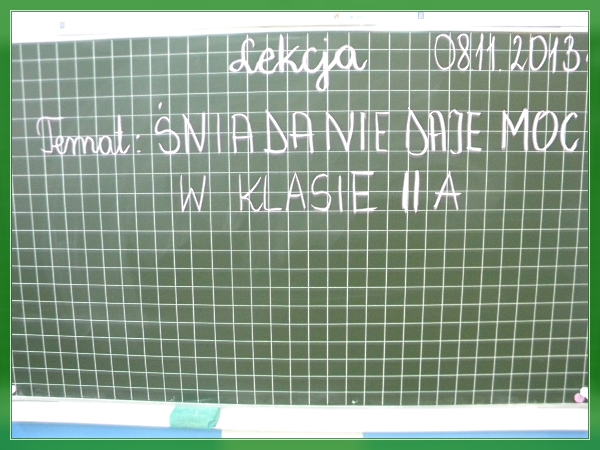 Lekcja 0811.2013.
Temat: ŚNIADANIE DAJE MOC
W KLASIE II A